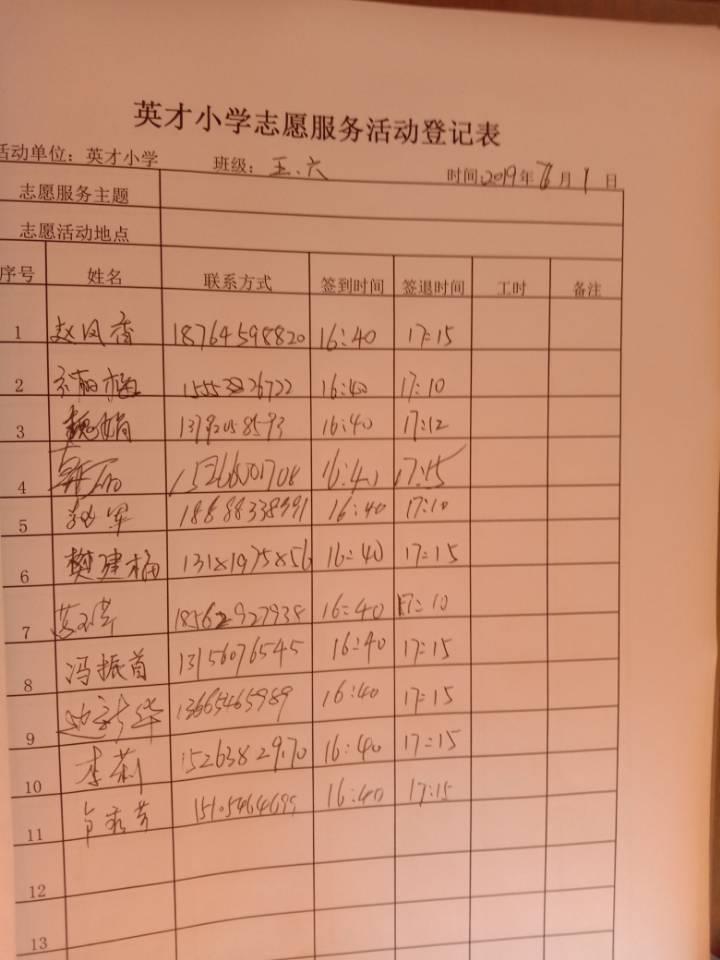 英才小学志愿服务活动登记表
活动单位：英才小学 班级：五.六 时间2019年 月1日
志愿服务主题
志愿活动地点
序号 姓名 联系方式 签到时间 签退时间 工时 备注
1 赵凤香 18764598820 16:40 17:15
2 16:40 17:10
3 魏娟 16:40 17:12
4 15266001708 16:40 17:15
5 赵军 18688338991 16:40 17:10
6 樊建福 16:40 17:15
7 18562927938 16:40 17:10
8 冯振首 13156076545 16:40 17:15
9 13665465989 16:40 17:15
10 李莉 15263829170 16:40 17:15
11 15105464699 16:40 17:15
12
13